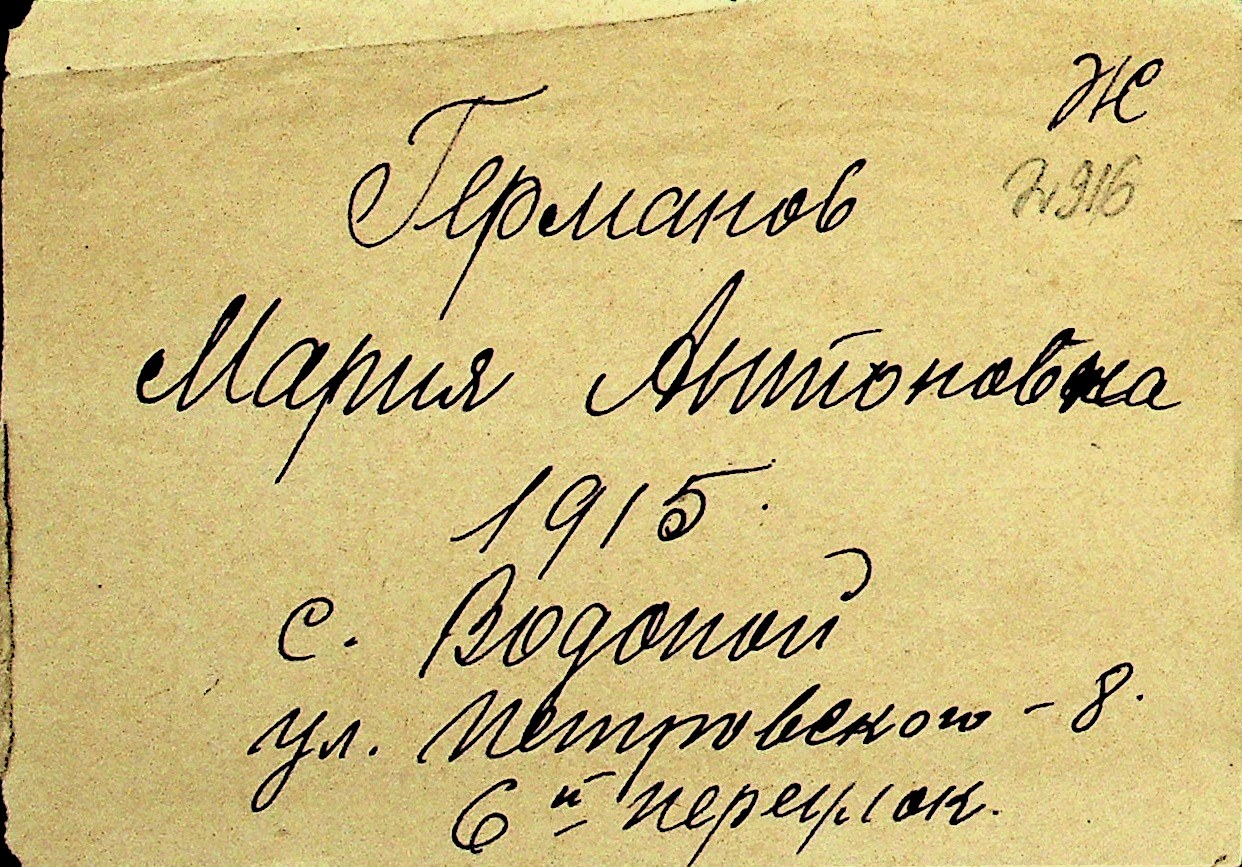 Ж
2916
Германов
Мария Антоновна
1915.
с. Водопой
ул. Петровского - 8.
6й переулок.